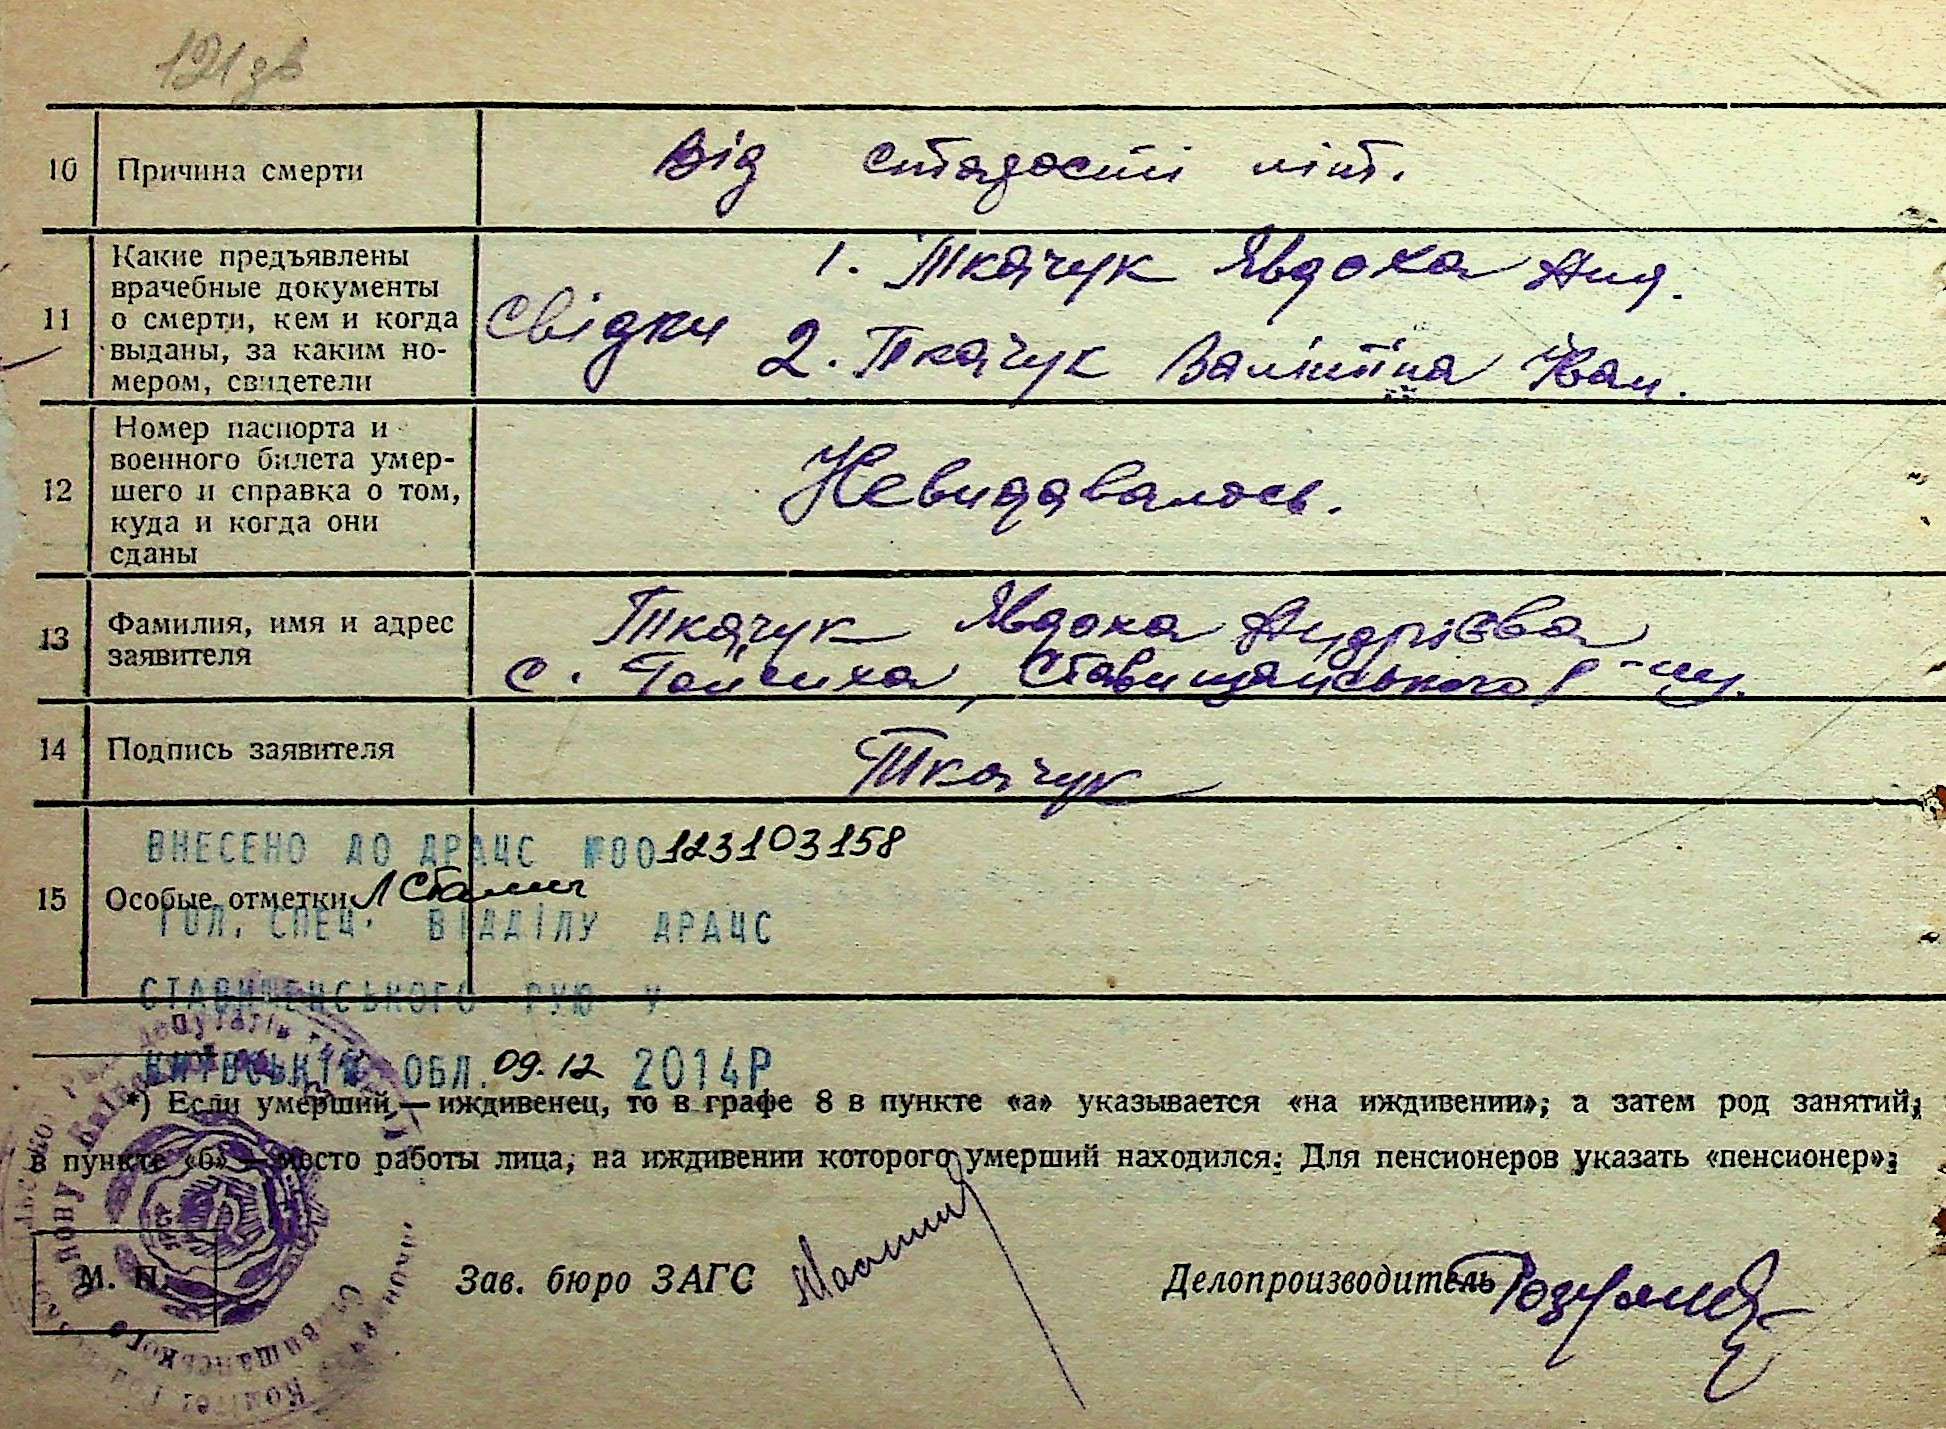 121 зв
10 Причина смерти Від старости літ.
11 Какие предъявлены врачебные документы о смерти, кем и когда выданы, за каким номером, свидетели
Свідки 1. Ткачук Явдоха Анд.
2. Ткачук Валінтіна Іван.
12 Номер паспорта и
военного билета умер-
шего и справка о том,
куда и когда они
сданы
Невидавалось.
13 Фамилия, имя и адрес
заявителя
Ткачук Явдоха Андрієва
с. Гейсиха, Ставищанського р-ну.
14 Подпись заявителя Ткачук
ВНЕСЕНО ДО ДРАЦС №00123103158
15 Особые отметки
ГОЛ. СПЕЦ. ВІДДІЛУ ДРАЦС
СТАВИЩЕНСЬКОГО РУЮ У
КИЇВСЬКІЙ ОБЛ. 09.12 2014Р
*) Если умерший — иждивенец, то в графе 8 в пункте «а» указывается «на иждивении», а затем род занятий,
в пункте «б» — место работы лица, на иждивении которого умерший находился. Для пенсионеров указать «пенсионер».
М. П. Зав. бюро ЗАГС Делопроизводитель
Ставищанського